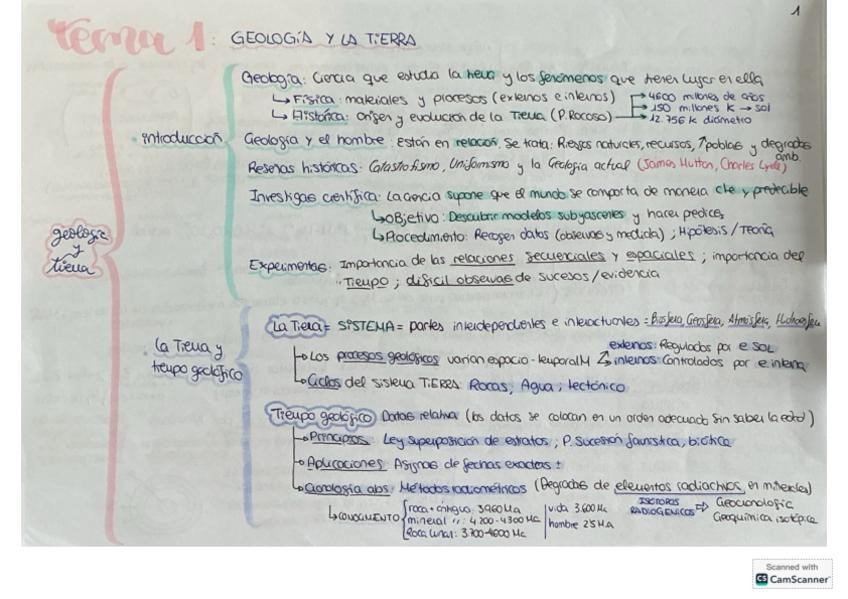 1
Tema 1: GEOLOGÍA Y LA TIERRA
Geología: Ciencia que estudia la tierra y los fenómenos que tienen lugar en ella
↳ Física: materiales y procesos (externos e internos)
→ 4600 millones de años
↳ Histórica: origen y evolución de la Tierra (P. Rocoso)
→ 150 millones K → sol
→ 12.756 K diámetro
· introducción
Geología y el hombre: Están en relación. Se trata: Riesgos naturales, recursos, ↑ poblas y degradas amb.
Reseñas históricas: Catastrofismo, Uniformismo y la Geología actual (James Hutton, Charles Lyell)
Investigas científica: La ciencia supone que el mundo se comporta de manera cte y predecible
↳ Objetivo: Descubrir modelos subyascentes y hacer pedices
↳ Procedimiento: Recoger datos (observas y medida); Hipótesis / Teoría
geología y tierra
Experimentas: Importancia de las relaciones secuenciales y espaciales; importancia del
tiempo; difícil observas de sucesos / evidencia
La Tierra = SISTEMA = partes interdependientes e interactuantes: Biosfera, Geosfera, Atmósfera, Hidrosfera
· La Tierra y tiempo geológico
↳ Los procesos geológicos varían espacio-temporalM
externos: Regulados por e SOL
internos: Controlados por e interna
↳ Ciclos del sistema TIERRA: Rocas, Agua, tectónico
Tiempo geológico: Datas relativa (los datos se colocan en un orden adecuado sin saber la edad)
→ Principios: Ley superposición de estratos, P. Sucesión faunística, biótica
→ Aplicaciones: Asignas de fechas exactas ±
↳ Cronología abs: Métodos radiométricos (Degradas de elementos radiactivos en minerales)
↳ CONOCIMIENTO
roca + antigua: 3960 Ma
mineral ": 4200-4300 Ma
Roca lunar: 3700-4600 Mc
vida 3.600 Ma
hombre 2'5 MA
ISOTOPOS RADIOGENICOS ⇒ Geocronología
Geoquímica isotópica
Scanned with
CS CamScanner